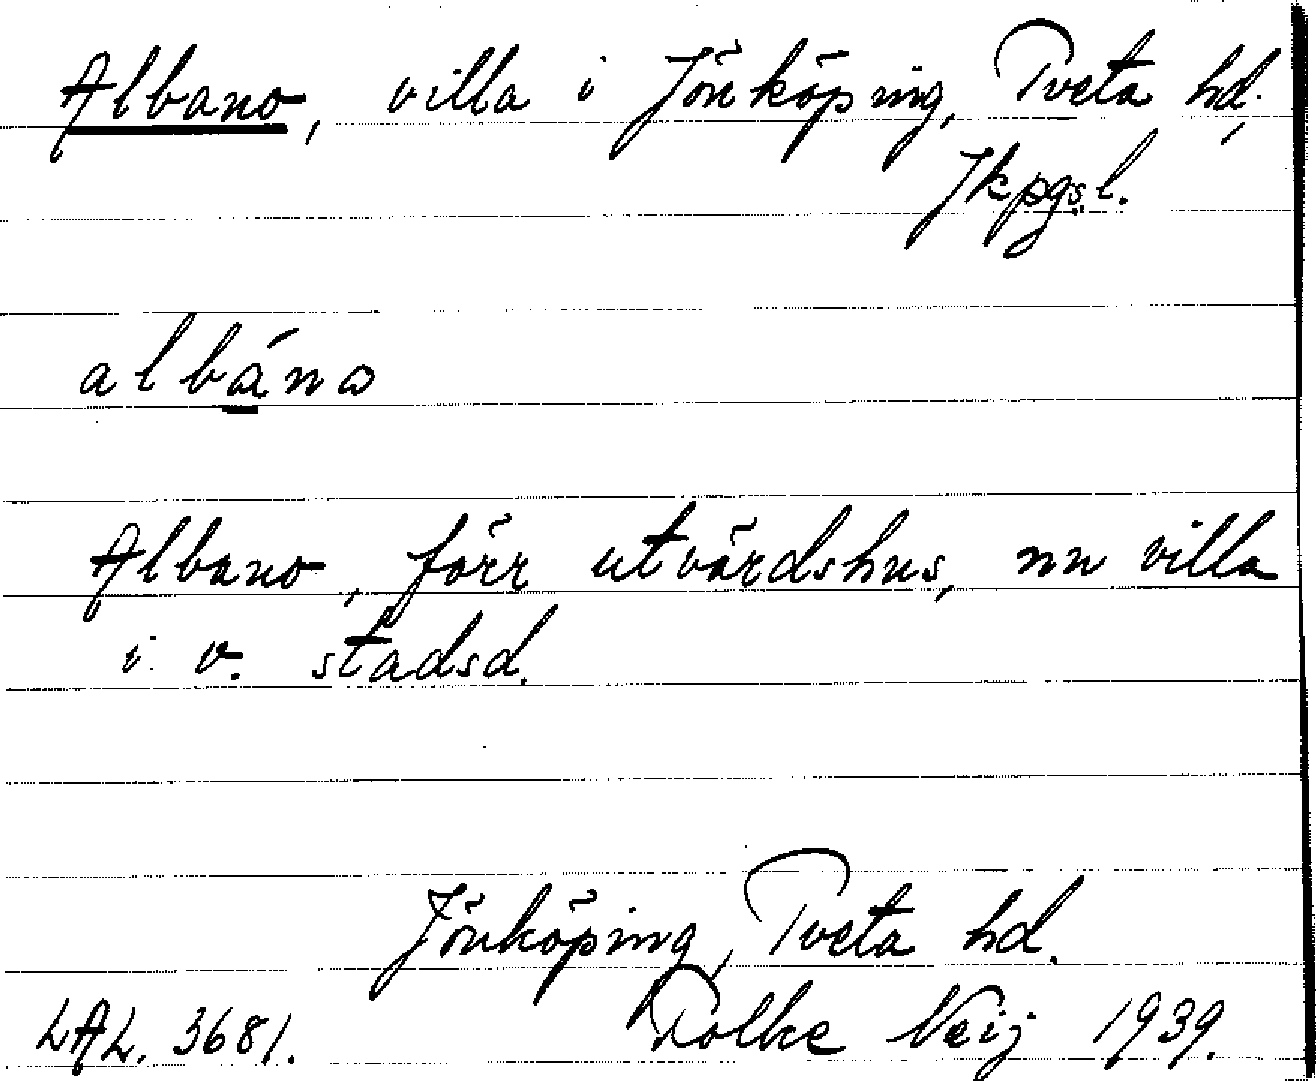 Albano, villa i Jönköping, Tveta hd.,
Jkpgs. l.
albáno
Albano, förr utvärdshus, nu villa
i v. stadsd.
Jönköping, Tveta hd.
LAL. 3681. Folke Neij 1939.